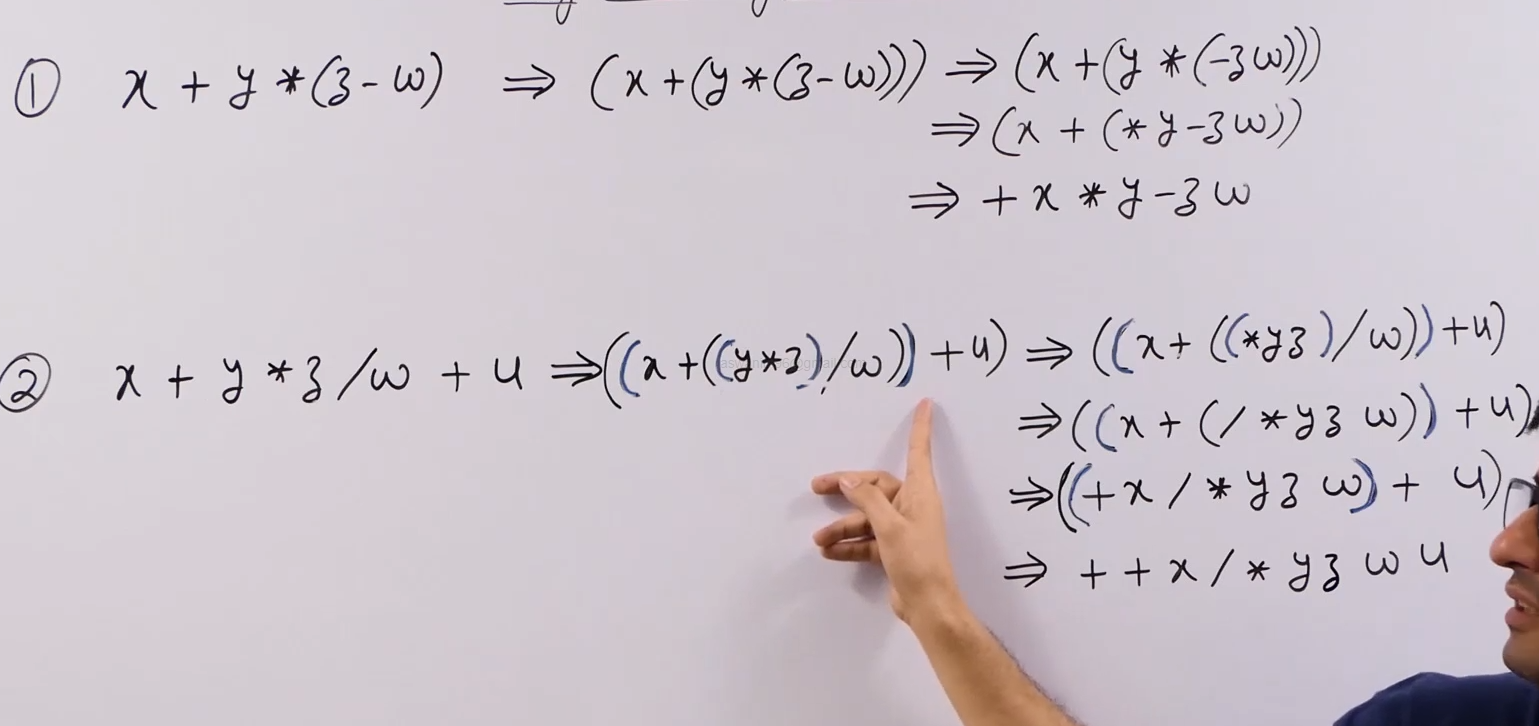 ① x + y * (z - w) ⇒ (x + (y * (z - w))) ⇒ (x + (y * (-zw)))
⇒ (x + (* y - z w))
⇒ + x * y - z w
② x + y * z / w + u ⇒ ((x + ((y * z) / w)) + u) ⇒ ((x + ((* y z) / w)) + u)
⇒ ((x + (/ * y z w)) + u)
⇒ ((+ x / * y z w) + u)
⇒ + + x / * y z w u